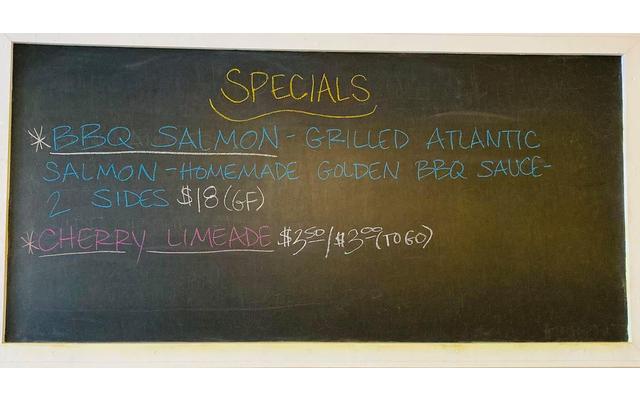 SPECIALS
*BBQ SALMON - GRILLED ATLANTIC
SALMON - HOMEMADE GOLDEN BBQ SAUCE -
2 SIDES $18 (GF)
*CHERRY LIMEADE $2.50/$3.00 (TO GO)